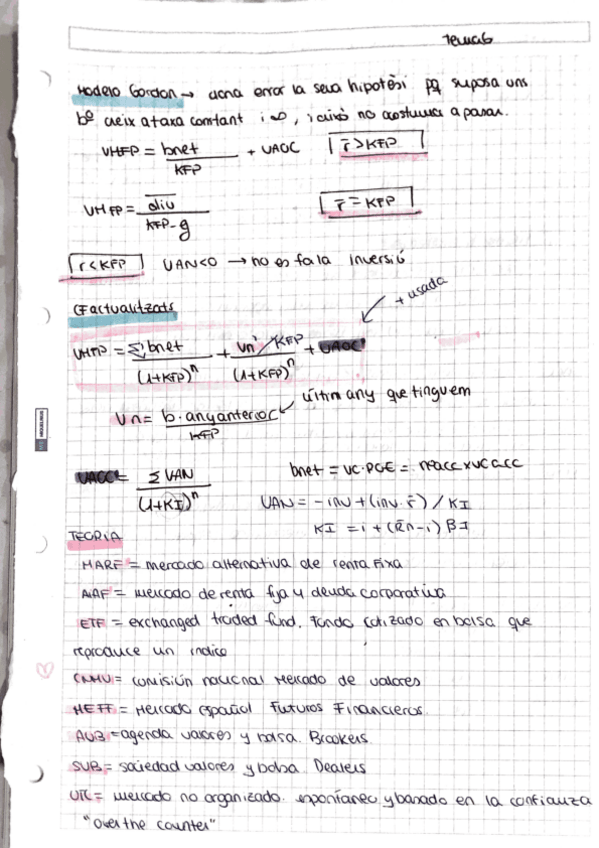 Tema 6
Modelo Gordon → dona error la seva hipotèsi pq suposa uns
bº creix a taxa constant i ∞, i això no acostuma a pasar.
VHFP = bnet / KFP + VAOC    r̄ > KFP
VHFP = div / KFP - g    r̄ = KFP
r < KFP   VAN<0 → no es fa la inversió
CF actualitzats
+ usada
VHFP = Σ bnet / (1+KFP)^n + Vn / KFP / (1+KFP)^n + VAOC
Vn = b. any anterior / KFP   últim any que tinguem
VAOC = Σ VAN / (1+KI)^n
bnet = VC·PGE = nºacc x VCacc
VAN = -inv + (inv · r̄) / KI
KI = i + (R̄n - i) βI
TEORIA
MARF = mercado alternativa de renta Fixa
AIAF = mercado de renta fija y deuda corporativa
ETF = exchanged traded fund. Fondo cotizado en bolsa que
reproduce un índice
CNMV = comisión nacional Mercado de valores
MEFF = Mercado español Futuros Financieros.
AVB = agenda valores y bolsa. Brookers
SVB = sociedad valores y bolsa. Dealers
OTC = mercado no organizado. espontáneo y basado en la confianza
"over the counter"